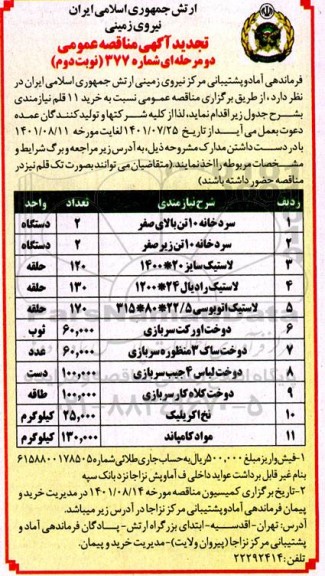 ارتش جمهوری اسلامی ایران
نیروی زمینی
تجدید آگهی مناقصه عمومی
دو مرحله‌ای شماره ۳۷۷ (نوبت دوم)
فرماندهی آماد و پشتیبانی مرکز نیروی زمینی ارتش جمهوری اسلامی ایران در
نظر دارد، از طریق برگزاری مناقصه عمومی نسبت به خرید ۱۱ قلم نیازمندی
بشرح جدول زیر اقدام نماید، لذا از کلیه شرکتها و تولیدکنندگان عمده
دعوت بعمل می آید از تاریخ ۱۴۰۱/۰۷/۲۵ لغایت مورخه ۱۴۰۱/۰۸/۱۱
با در دست داشتن مدارک مشروحه ذیل، به آدرس زیر مراجعه و برگ شرایط و
مشخصات مربوطه را اخذ نمایند (متقاضیان می توانند بصورت تک قلم نیز در
مناقصه حضور داشته باشند)
ردیف شرح نیازمندی تعداد واحد
۱ سردخانه ۱۰ تن بالای صفر ۲ دستگاه
۲ سردخانه ۱۰ تن زیر صفر ۲ دستگاه
۳ لاستیک سایز ۲۰*۱۴۰۰ ۱۲۰ حلقه
۴ لاستیک رادیال ۲۴*۱۲۰۰ ۱۳۰ حلقه
۵ لاستیک اتوبوسی ۲۲/۵*۸۰*۳۱۵ ۱۷۰ حلقه
۶ دوخت اورکت سربازی ۶۰,۰۰۰ ثوب
۷ دوخت ساک ۳ منظوره سربازی ۶۰,۰۰۰ عدد
۸ دوخت لباس ۴ جیب سربازی ۱۰۰,۰۰۰ دست
۹ دوخت کلاه کار سربازی ۱۰۰,۰۰۰ طاقه
۱۰ نخ اکریلیک ۲۵,۰۰۰ کیلوگرم
۱۱ مواد کامپاند ۱۳۰,۰۰۰ کیلوگرم
۱-فیش واریز مبلغ ۵۰۰,۰۰۰ ریال به حساب جاری طلائی شماره ۶۱۵۸۸۰۰۱۷۸۵۰۵
بنام غیر قابل برداشت عواید داخلی ف آماد و پش نزاجا نزد بانک سپه
۲-تاریخ برگزاری کمیسیون مناقصه مورخه ۱۴۰۱/۰۸/۱۴ در مدیریت خرید و
پیمان فرماندهی آماد و پشتیبانی مرکز نزاجا در آدرس زیر میباشد.
آدرس: تهران- اقدسیه- ابتدای بزرگراه ارتش- پادگان فرماندهی آماد و
پشتیبانی مرکز نزاجا (پیروان ولایت)- مدیریت خرید و پیمان.
تلفن: ۲۲۲۹۲۴۱۴